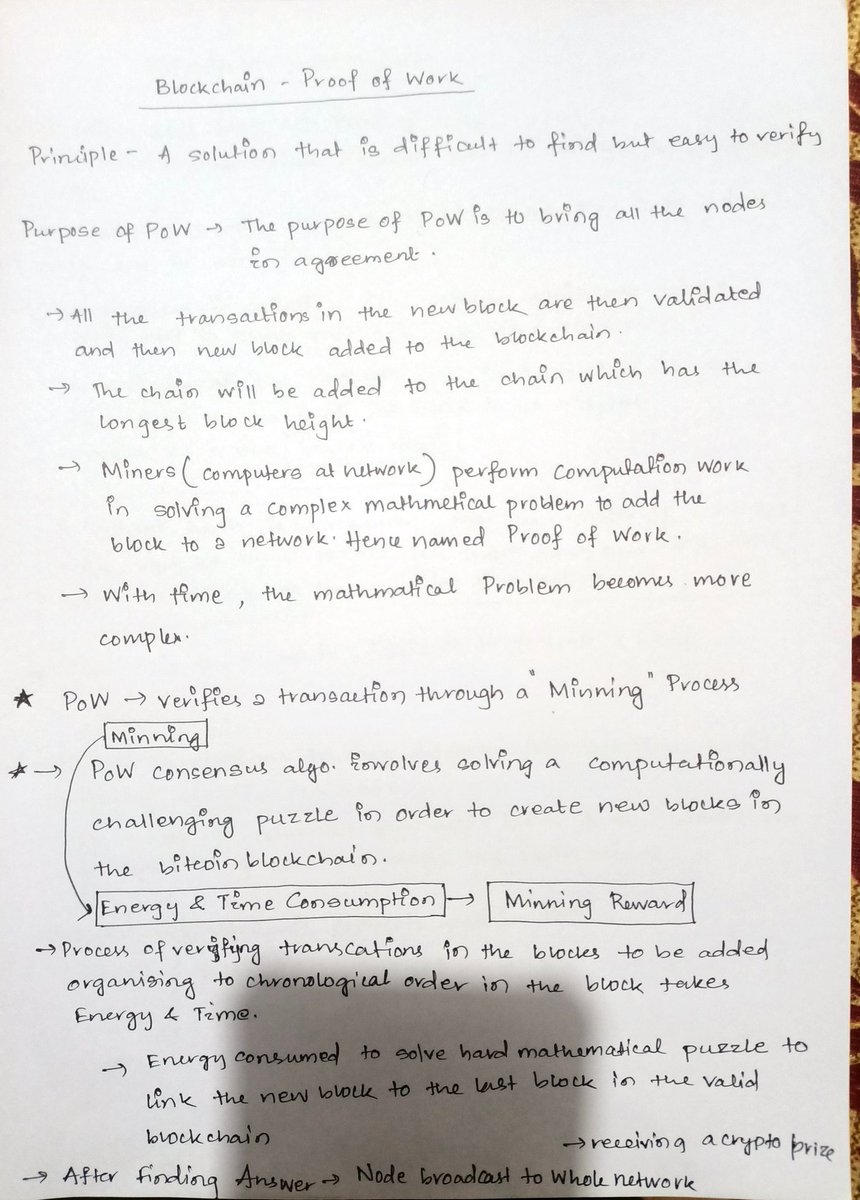 Blockchain - Proof of Work
Principle - A solution that is difficult to find but easy to verify
Purpose of PoW → The purpose of PoW is to bring all the nodes
in agreement.
→ All the transactions in the new block are then validated
and then new block added to the blockchain.
→ The chain will be added to the chain which has the
longest block height.
→ Miners (computers at network) perform computation work
in solving a complex mathmetical problem to add the
block to a network. Hence named Proof of Work.
→ With time, the mathmatical Problem becomes more
complex.
★ PoW → verifies a transaction through a "Minning" Process
Minning
★ → PoW consensus algo. involves solving a computationally
challenging puzzle in order to create new blocks in
the bitcoin blockchain.
Energy & Time Consumption → Minning Reward
→ Process of verifying transcations in the blocks to be added
organising to chronological order in the block takes
Energy & Time.
→ Energy consumed to solve hard mathematical puzzle to
link the new block to the last block in the valid
blockchain
→ receiving a crypto prize
→ After finding Answer → Node broadcast to whole network